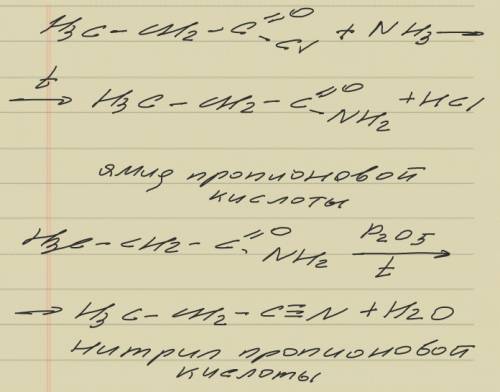 H₃C – CH₂ – C =O – Cl + NH₃ →
t → H₃C – CH₂ – C =O – NH₂ + HCl
амид пропионовой
кислоты
H₃C – CH₂ – C =O – NH₂ P₂O₅ t →
→ H₃C – CH₂ – C≡N + H₂O
нитрил пропионовой
кислоты